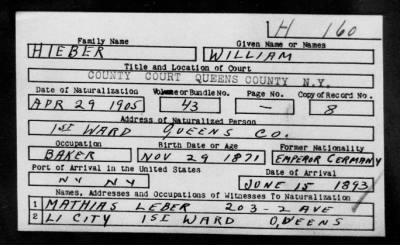 H 160
Family Name Given Name or Names
HIEBER WILLIAM
Title and Location of Court
COUNTY COURT QUEENS COUNTY N.Y.
Date of Naturalization Volume or Bundle No. Page No. Copy of Record No.
APR 29 1905 43 — 8
Address of Naturalized Person
1ST WARD QUEENS CO.
Occupation Birth Date or Age Former Nationality
BAKER NOV 29 1871 EMPEROR GERMANY
Port of Arrival in the United States Date of Arrival
NY NY JUNE 15 1893
Names, Addresses and Occupations of Witnesses To Naturalization
1 MATHIAS LEBER 203-2 AVE
2 LI CITY 1SE WARD QUEENS